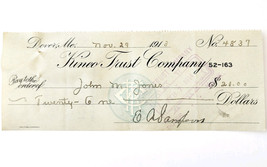 Nov. 29 1918 No. 4837
Trust Company 52-163
Pay to the order of John M. Jones $21.00
Twenty-One Dollars